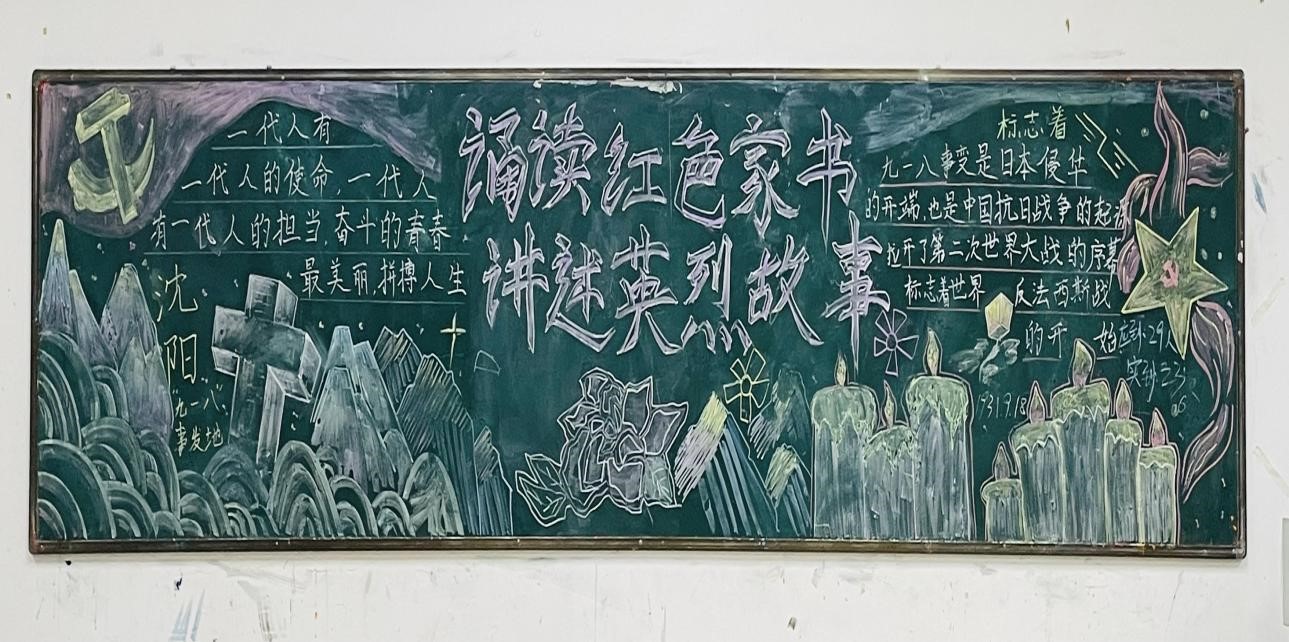 一代人有
一代人的使命,一代人
有一代人的担当,奋斗的青春
最美丽,拼搏人生
沈
阳
九一八
事发地
诵读红色家书
讲述英烈故事
标志着
九一八事变是日本侵华
的开端,也是中国抗日战争的起源
拉开了第二次世界大战的序幕
标志着世界 反法西斯战
的开 始
应到29人
实到23
1931.9.18